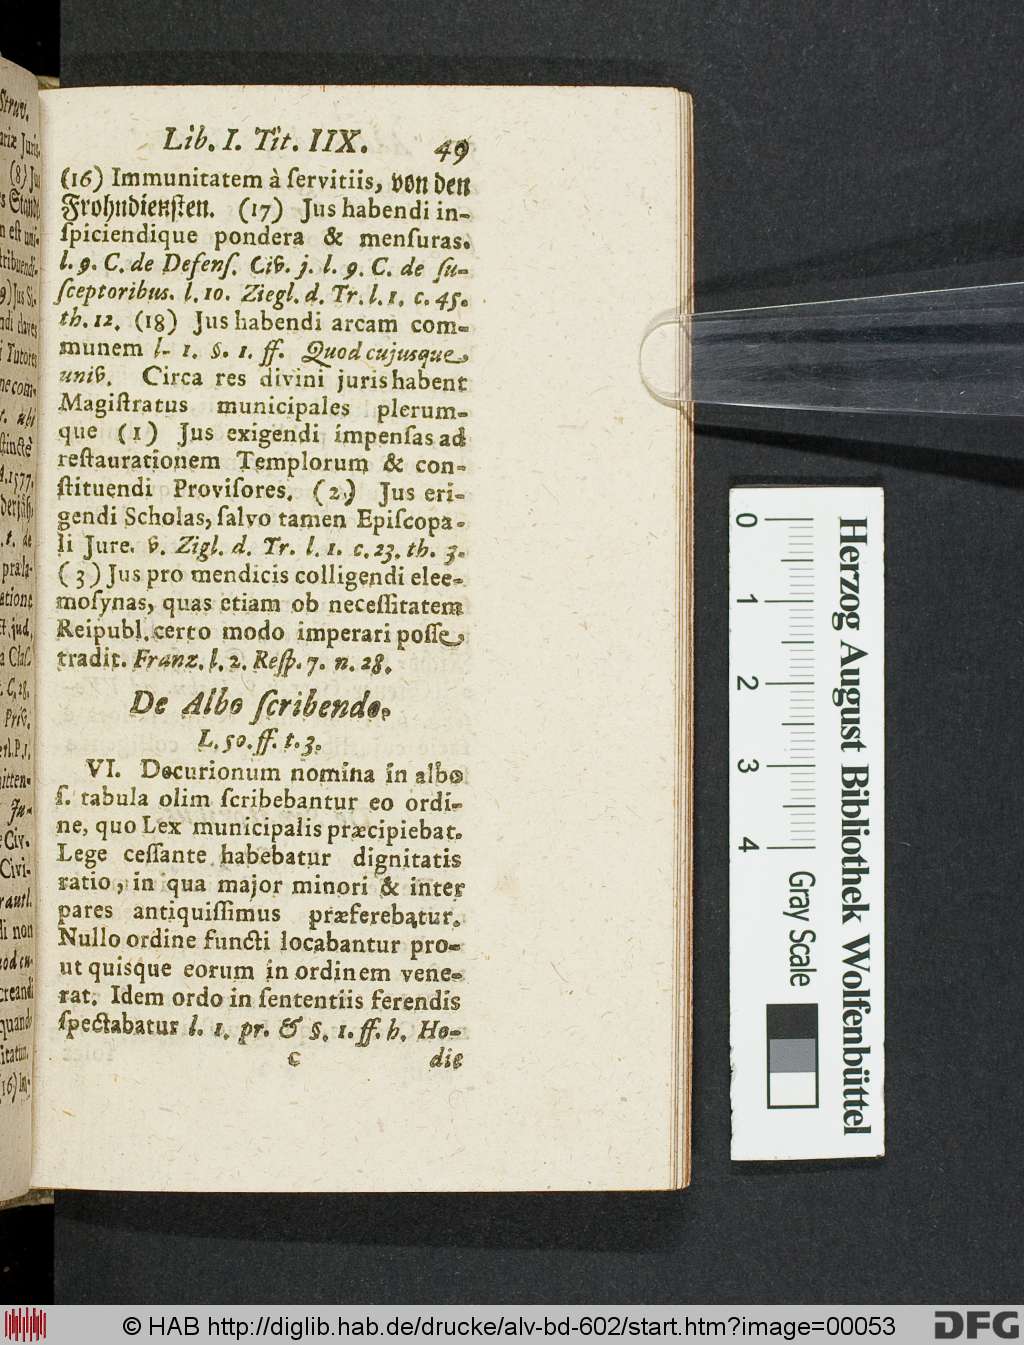 Lib. I. Tit. IIX. 49
(16) Immunitatem à ſervitiis, von den
Frohndienſten. (17) Jus habendi in-
ſpiciendique pondera & menſuras.
l. 9. C. de Defenſ. Civ. j. l. 9. C. de ſu-
ſceptoribus. l. 10. Ziegl. d. Tr. l. 1. c. 45.
th. 12. (18) Jus habendi arcam com-
munem l. 1. §. 1. ff. Quod cujusque
univ. Circa res divini juris habent
Magiſtratus municipales plerum-
que (1) Jus exigendi impenſas ad
reſtaurationem Templorum & con-
ſtituendi Proviſores. (2) Jus eri-
gendi Scholas, ſalvo tamen Epiſcopa-
li Jure. v. Zigl. d. Tr. l. 1. c. 23. th. 3.
(3) Jus pro mendicis colligendi elee-
moſynas, quas etiam ob neceſſitatem
Reipubl. certo modo imperari poſſe,
tradit. Franz. l. 2. Reſp. 7. n. 28.
De Albo ſcribendo.
L. 50. ff. t. 3.
VI. Decurionum nomina in albo
ſ. tabula olim ſcribebantur eo ordi-
ne, quo Lex municipalis præcipiebat.
Lege ceſſante habebatur dignitatis
ratio, in qua major minori & inter
pares antiquiſſimus præferebatur.
Nullo ordine functi locabantur pro-
ut quisque eorum in ordinem vene-
rat. Idem ordo in ſententiis ferendis
ſpectabatur l. 1. pr. & §. 1. ff. h. Ho-
C die
0 1 2 3 4
Gray Scale
Herzog August Bibliothek Wolfenbüttel
© HAB http://diglib.hab.de/drucke/alv-bd-602/start.htm?image=00053
DFG